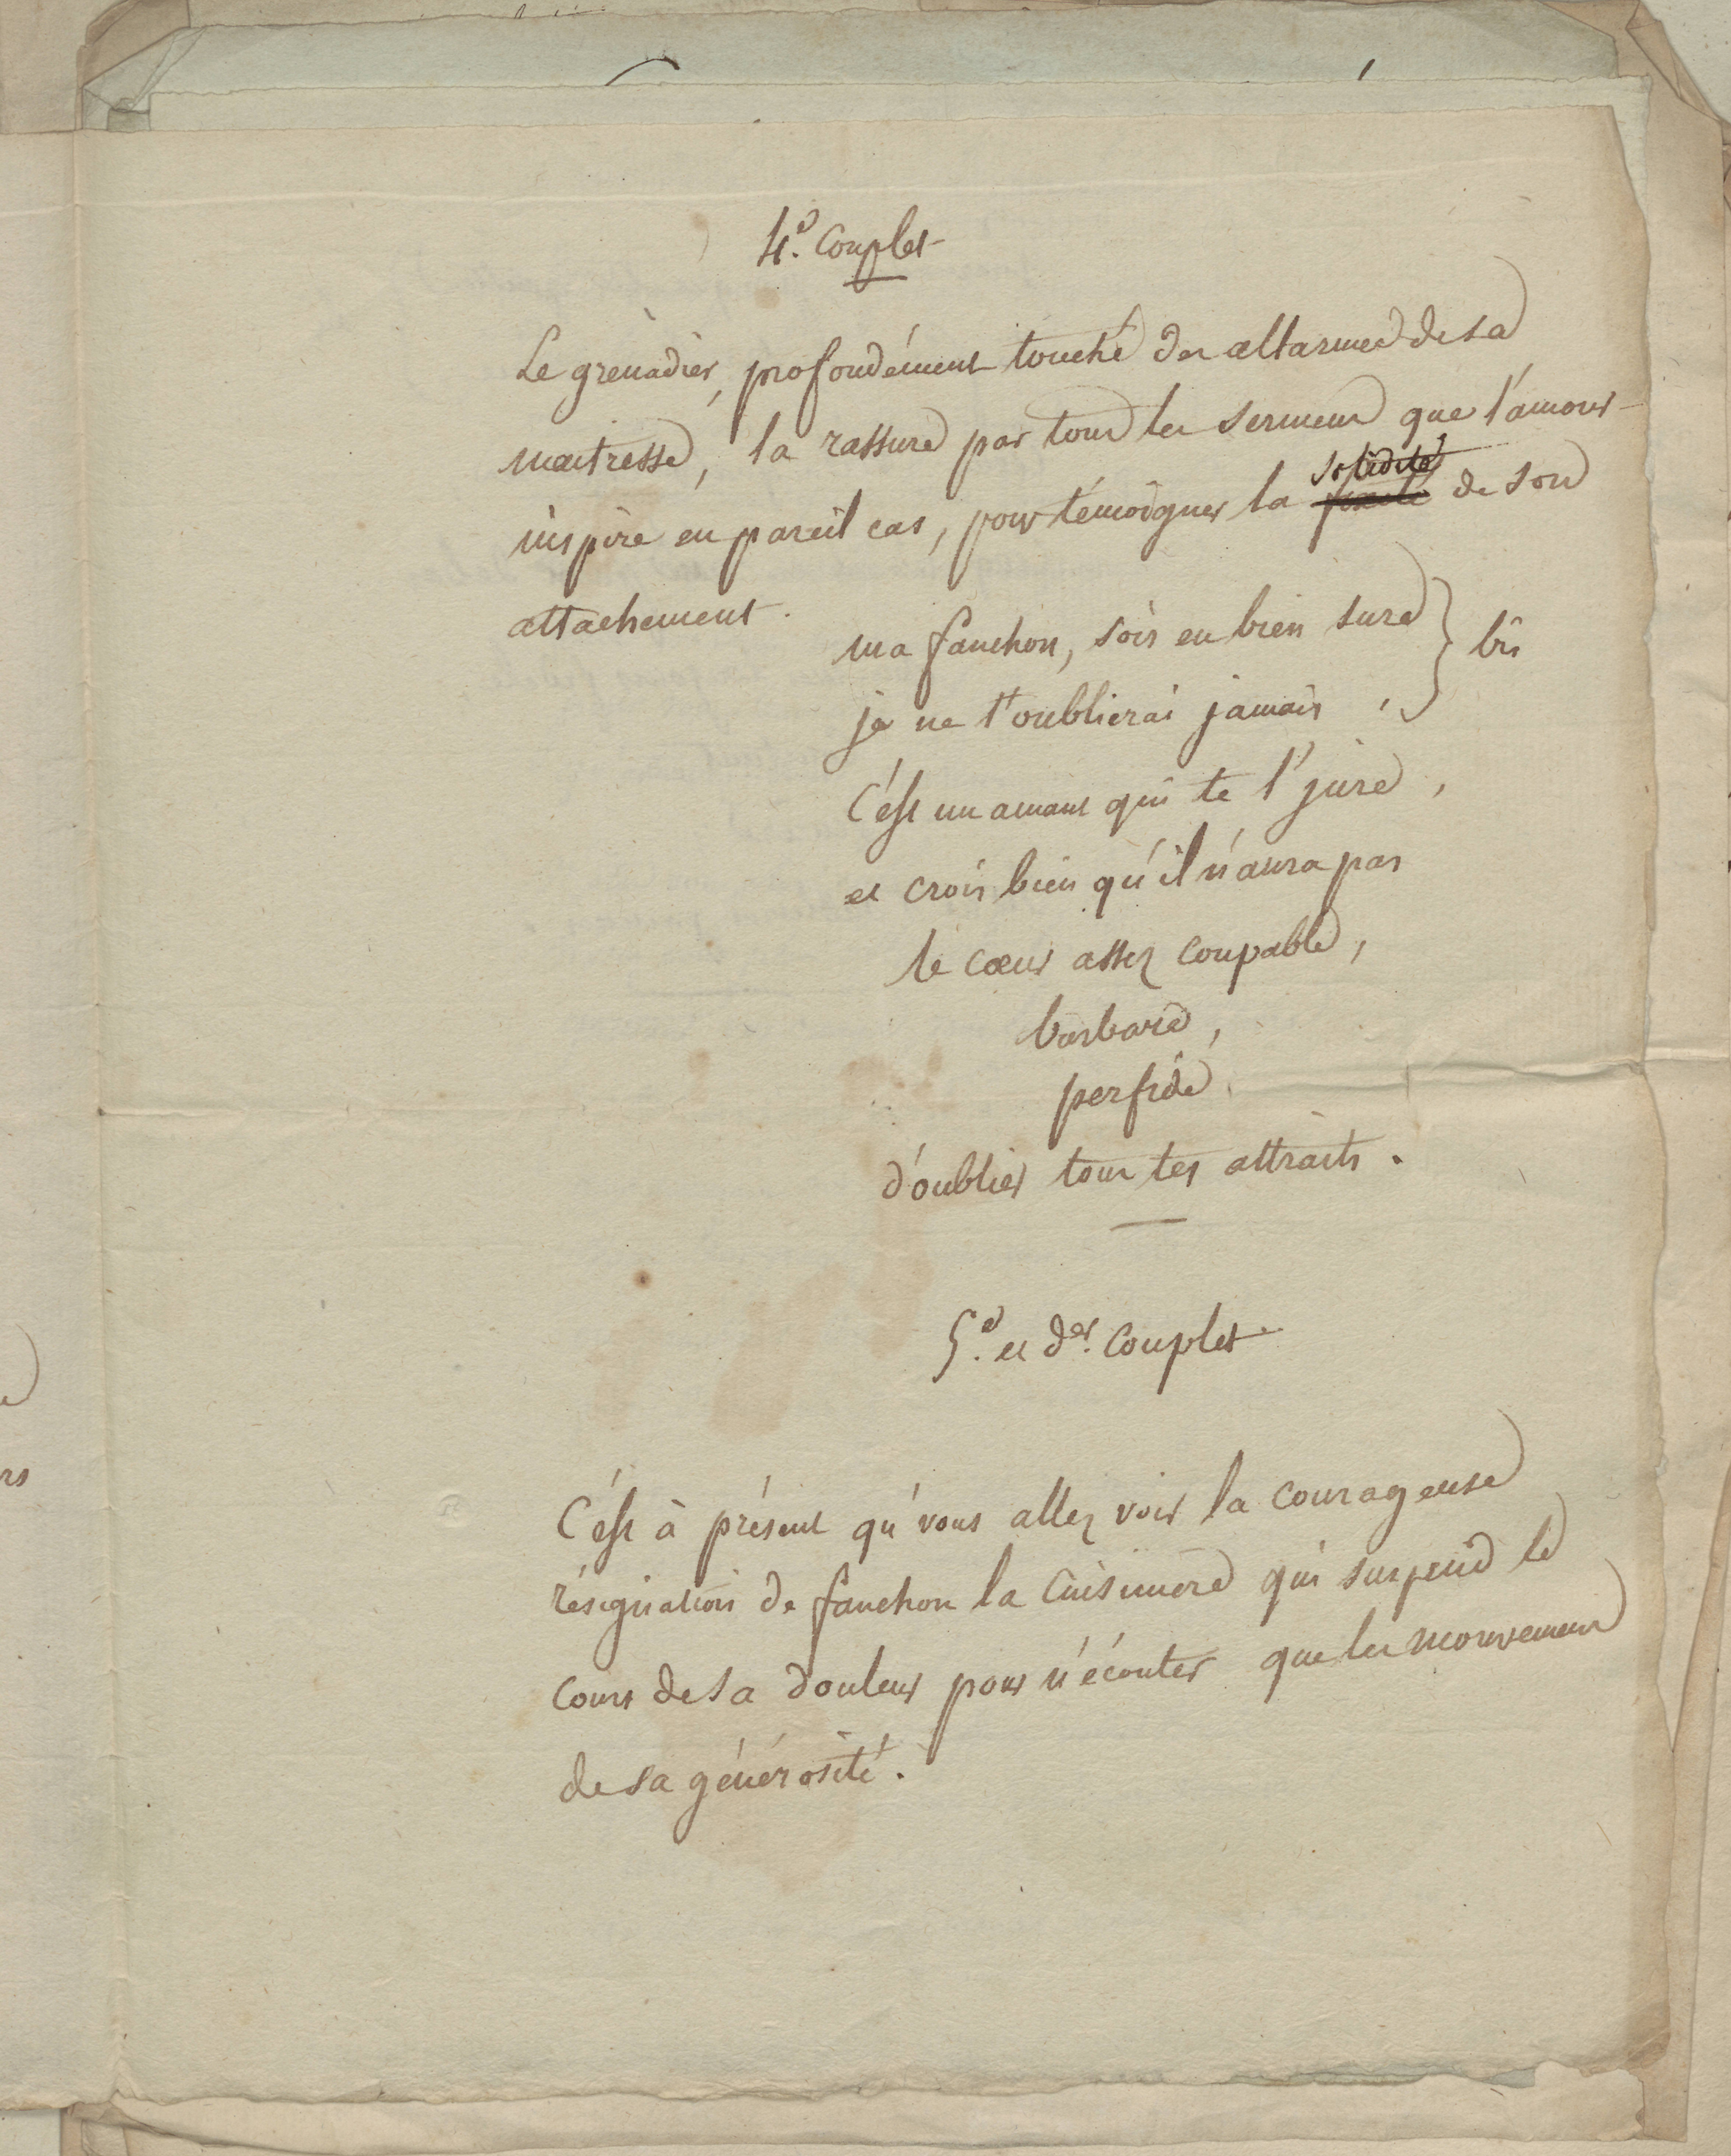 4.e Couplet
Le grenadier, profondément touché des allarmes de sa
maitresse, la rassure par tous les sermens que l'amour
inspire en pareil cas, pour témoigner la solidité de son
attachement.
ma fanchon, sois en bien sure } bis
je ne t'oublierai jamais,
C'est un amant qui te l'jure,
et crois bien qu'il n'aura pas
le cœur assez coupable,
barbare,
perfide
d'oublier tous tes attraits.
5.e et der. Couplet
C'est à présent qu'vous allez voir la courageuse
résignation de fanchon la Cuisiniere qui suspend le
cours de sa douleur pour n'écouter que les mouvemens
de sa générosité.